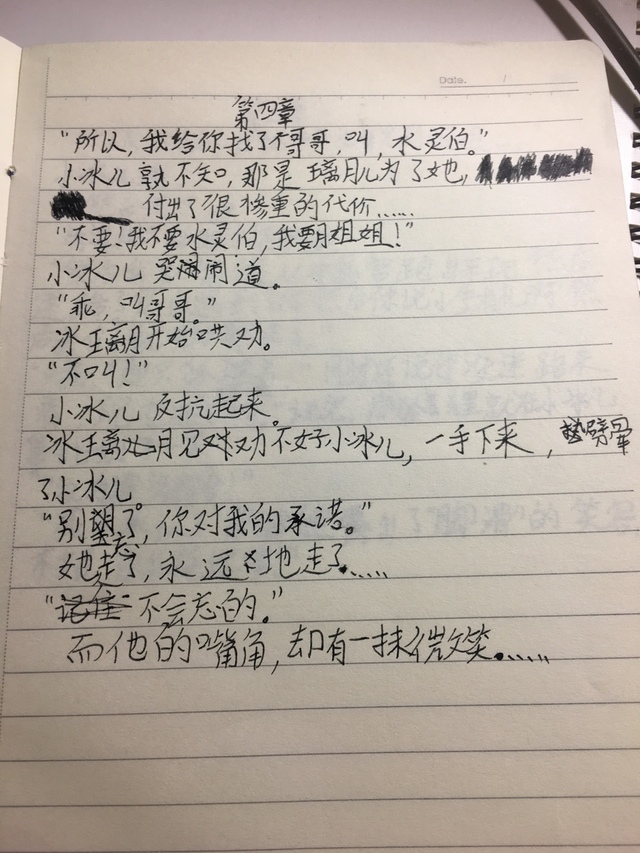 Date. /
第四章
“所以,我给你找了个哥哥,叫,水灵伯。”
小冰儿孰不知,那是璃月儿为了她,
付出了很惨重的代价……
“不要!我不要水灵伯,我要月姐姐!”
小冰儿哭闹道。
“乖,叫哥哥。”
冰璃月开始哄劝。
“不叫!”
小冰儿反抗起来。
冰璃月见劝不好小冰儿,一手下来,劈晕
了小冰儿。
“别忘了,你对我的承诺。”
她走了,永远地走了……
“不会忘的。”
而他的嘴角,却有一抹微笑……